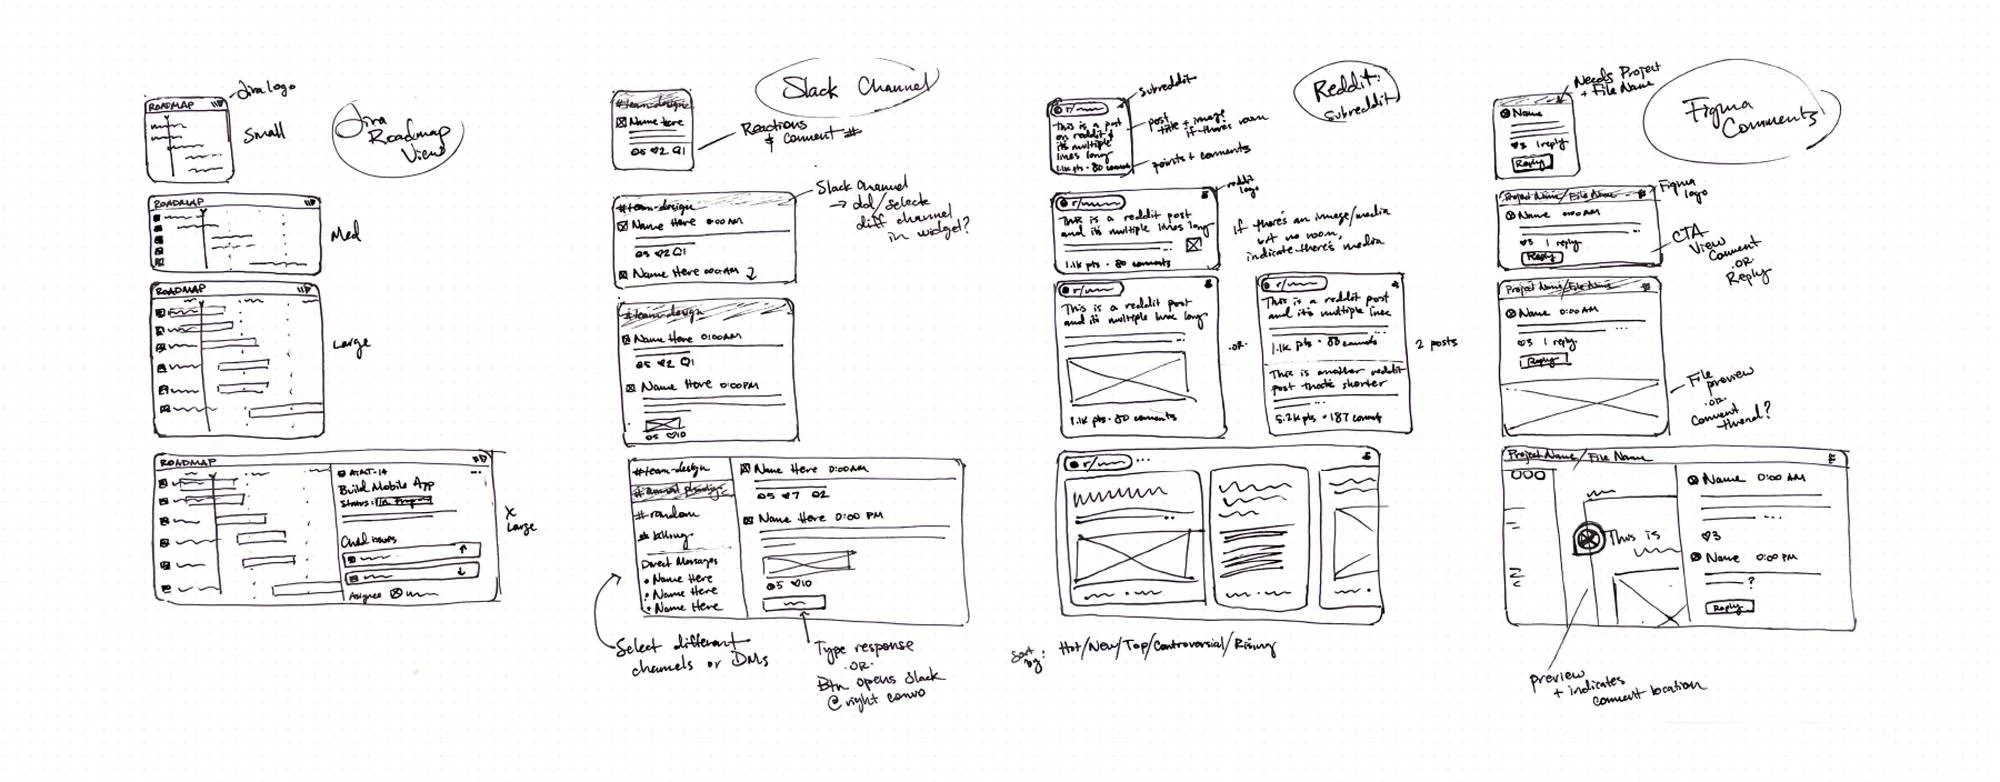 Jira Roadmap View
ROADMAP
Jira logo
Small
ROADMAP
Med
ROADMAP
Large
ROADMAP
Build Mobile App
Status: In Progress
Child issues
Assignee
X Large
Slack Channel
#team-design
Name here
5 2 1
Reactions
& Comment #
#team-design
Name Here 0:00AM
5 2 1
Name Here 0:00AM
Slack Channel
→ add/select
diff channel
in widget?
#team-design
Name Here 0:00AM
5 2 1
Name Here 0:00PM
5 10
#team-design
#random
#billing
Direct Messages
• Name Here
• Name Here
• Name Here
Name Here 0:00AM
5 7 2
Name Here 0:00 PM
5 10
Select different
channels or DMs
Type response
·OR·
Btn opens Slack
@ right convo
Reddit:
Subreddit
r/
This is a post
on reddit &
its multiple
lines long
1.1k pts · 80 comms
subreddit
post
title + image
if there's room
points + comments
r/
This is a reddit post
and its multiple lines long
1.1k pts · 80 comments
reddit
logo
If there's an image/media
but no room,
indicate there's media
r/
This is a reddit post
and its multiple lines long
1.1k pts · 80 comments
·OR·
r/
This is a reddit post
and its multiple lines
1.1k pts · 80 comments
This is another reddit
post that's shorter
5.2k pts · 187 comments
2 posts
r/
Sort by: Hot/New/Top/Controversial/Rising
Figma
Comments
Needs Project
+ File Name
Name
3 1 reply
Reply
Project Name/File Name
Name 0:00AM
3 1 reply
Reply
Figma
logo
CTA
View
Comment
·OR·
Reply
Project Name/File Name
Name 0:00AM
3 1 reply
Reply
File
preview
·OR·
Comment
thread?
Project Name/File Name
This is
Name 0:00 AM
3
Name 0:00 PM
?
Reply
preview
+ indicates
comment location